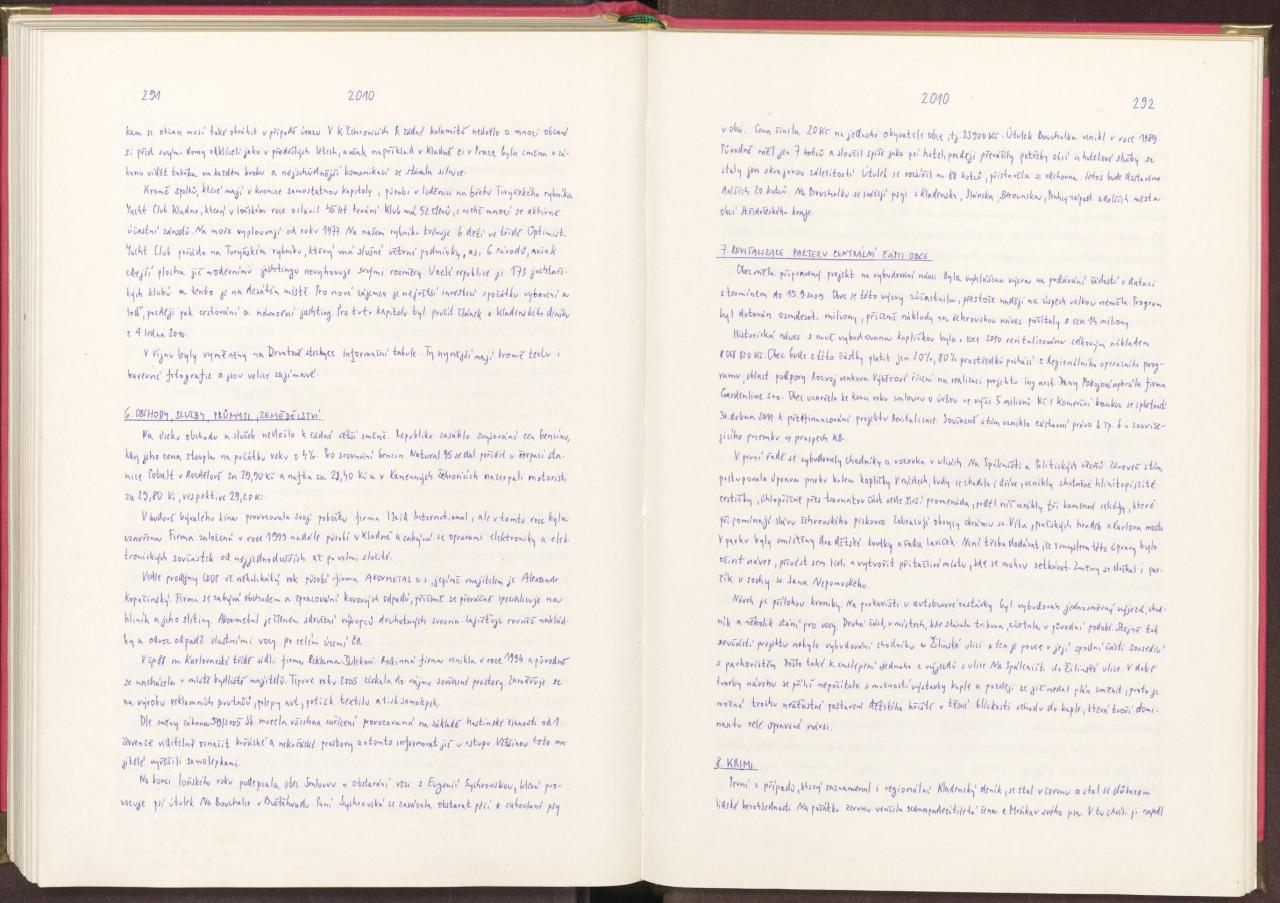 291 2010
kam se občan musí také obrátit v případě úrazu. V K. Žehrovicích k žádné kalamitě nedošlo a mnozí občané
si před svými domy odklíželi jako v předešlých letech, avšak například v Kladně či v Praze byla změna v zá-
konu vidět takřka na každém kroku a nejschůdnější komunikací se stávala silnice.
Kromě spolků, které mají v kronice samostatnou kapitolu, působí v loděnici na břehu Turyňského rybníka
Yacht Club Kladno, který v loňském roce oslavil 45 let trvání. Klub má 52 členů, z nichž mnozí se aktivně
účastní závodů. Na moře vyplouvají od roku 1977. Na našem rybníku trénuje 6 dětí ve třídě Optimist.
Yacht Club pořádá na Turyňském rybníku, který má slušné větrné podmínky, asi 6 závodů, avšak
zdejší plocha již modernímu jachtingu nevyhovuje svými rozměry. V celé republice je 173 jachtařs-
kých klubů a tento je na desátém místě. Pro nové zájemce je největší investicí zpočátku vybavení a
loď, později pak cestování a námořní jachting. Pro tuto kapitolu byl použit článek z Kladenského deníku
z 4. ledna 2010.
V říjnu byly vyměněny na Drvotově stezce informační tabule. Ty nynější mají kromě textu i
barevné fotografie a jsou velice zajímavé.
6. OBCHODY, SLUŽBY, PRŮMYSL, ZEMĚDĚLSTVÍ
Na úseku obchodu a služeb nedošlo k žádné větší změně. Republiku zasáhlo zvyšování cen benzinu,
kdy jeho cena stoupla na počátku roku o 4%. Pro srovnání benzin Natural 95 se dal pořídit u čerpací sta-
nice Cobalt v Rozdělově za 29,90 Kč a nafta za 28,40 Kč a v Kamenných Žehrovicích načerpali motoristi
za 29,80 Kč, respektive 29,20 Kč.
V budově bývalého kina provozovala svoji pobočku firma Izaid International, ale v tomto roce byla
uzavřena. Firma založená v roce 1999 nadále působí v Kladně a zabývá se opravami elektroniky a elek-
tronických součástek od nejjednodušších až po velmi složité.
Vedle prodejny COOP už několikátý rok působí firma AKOMETAL a.s., jejímž majitelem je Alexandr
Kopačinský. Firma se zabývá obchodem a zpracování kovových odpadů, přičemž se převážně specializuje na
hliník a jeho slitiny. Akometal je členem sdružení výkupců druhotných surovin. Zajišťuje rovněž naklád-
ku a odvoz odpadů vlastními vozy po celém území ČR.
V čp. 88 na Karlovarské třídě sídlí firma Reklama Dalekoni. Rodinná firma vznikla v roce 1994 a původně
se nacházela v místě bydliště majitelů. Teprve roku 2005 získala do nájmu současné prostory. Zaměřuje se
na výrobu reklamních poutačů, polepy aut, potisk textilu a tisk samolepek.
Dle změny zákona 379/2005 Sb. musela všechna zařízení provozovaná na základě hostinské činnosti od 1.
července viditelně označit kuřácké a nekuřácké prostory a o tom informovat již u vstupu. Většinou toto ma-
jitelé vyřešili samolepkami.
Na konci loňského roku podepsala obec smlouvu o obstarání věci s Eugenií Sychrovskou, která pro-
vozuje psí útulek Na Bouchalce v Buštěhradu. Paní Sychrovská se zavázala obstarat péči o zatoulané psy
2010 292
v obci. Cena činila 20 Kč na jednoho obyvatele obce, tj. 33 900 Kč. Útulek Bouchalka vznikl v roce 1989.
Původně měl jen 7 kotců a sloužil spíše jako psí hotel, později převážily potřeby obcí a hotelové služby se
staly jen okrajovou záležitostí. Útulek se rozšířil na 28 kotců, přistavěla se odchovna, letos bude dostaveno
dalších 20 kotců. Na Bouchalku se svážejí psi z Kladenska, Slánska, Berounska, Prahy-západ a dalších měst a
obcí Středočeského kraje.
7. REVITALIZACE PARTERU CENTRÁLNÍ ČÁSTI OBCE
Obec měla připravený projekt na vybudování návsi. Byla vyhlášena výzva na podávání žádostí o dotaci
s termínem do 15. 9. 2009. Obec se této výzvy zúčastnila, přestože naději na úspěch velkou neměla. Program
byl dotován osmdesáti miliony, přičemž náklady na žehrovskou náves počítaly s cca 14 miliony.
Historická náves s nově vybudovanou kapličkou byla v roce 2010 revitalizována celkovým nákladem
8 088 120 Kč. Obec bude z této částky platit jen 20%, 80% prostředků pochází z Regionálního operačního prog-
ramu, oblast podpory Rozvoj venkova. Výběrové řízení na realizaci projektu ing. arch. Dany Pokojové vyhrála firma
Gardenline s.r.o. Obec uzavřela ke konci roku smlouvu o úvěru ve výši 5 milionů Kč s Komerční bankou se splatností
30. dubna 2011 k předfinancování projektu Revitalizace. Současně s tím vzniklo zástavní právo k čp. 6 a souvise-
jícího pozemku ve prospěch KB.
V první řadě se vybudovaly chodníky a vozovka v ulicích Na Spáleništi a Politických vězňů. Zároveň s tím
postupovala úprava parku kolem kapličky. V místech, kudy se chodilo i dříve, vznikly chutněné hlinitopísčité
cestičky, chlopňově přes travnatou část vede širší promenáda, podél níž vznikly tři kamenné reliéfy, které
připomínají slávu žehrovského pískovce. Zobrazují obrysy chrámu sv. Víta, pražských hradeb a Karlova mostu.
V parku byly umístěny dva dětské koutky a řada laviček. Není třeba dodávat, že smyslem této úpravy bylo
oživit náves, přivést sem lidi a vytvořit přitažlivé místo, kde se mohou setkávat. Změny se dočkal i par-
čík u sochy sv. Jana Nepomuckého.
Návrh je přílohou kroniky. Na parkovišti u autobusové zastávky byl vybudován jednosměrný výjezd, chod-
ník a několik stání pro vozy. Druhá část, v místech, kde stávala tribuna, zůstala v původní podobě. Stejně tak
součástí projektu nebylo vybudování chodníku v Žilinské ulici a ten je pouze v její spodní části sousedící
s parkovištěm. Došlo také k zaslepení jednoho z výjezdů z ulice Na Spáleništi do Žilinské ulice. V době
tvorby návrhu se příliš nepočítalo s možností výstavby kaple a později se již nedal plán změnit, proto je
možná trochu nešťastné postavení dětského hřiště v těsné blízkosti vchodu do kaple, která tvoří domi-
nantu celé upravené návsi.
8. KRIMI
První z případů, který zaznamenal i regionální Kladenský deník, se stal v červnu a stal se důkazem
lidské bezohlednosti. Na počátku června venčila sedmapadesátiletá žena z Mrákav svého psa. V tu chvíli ji napadl